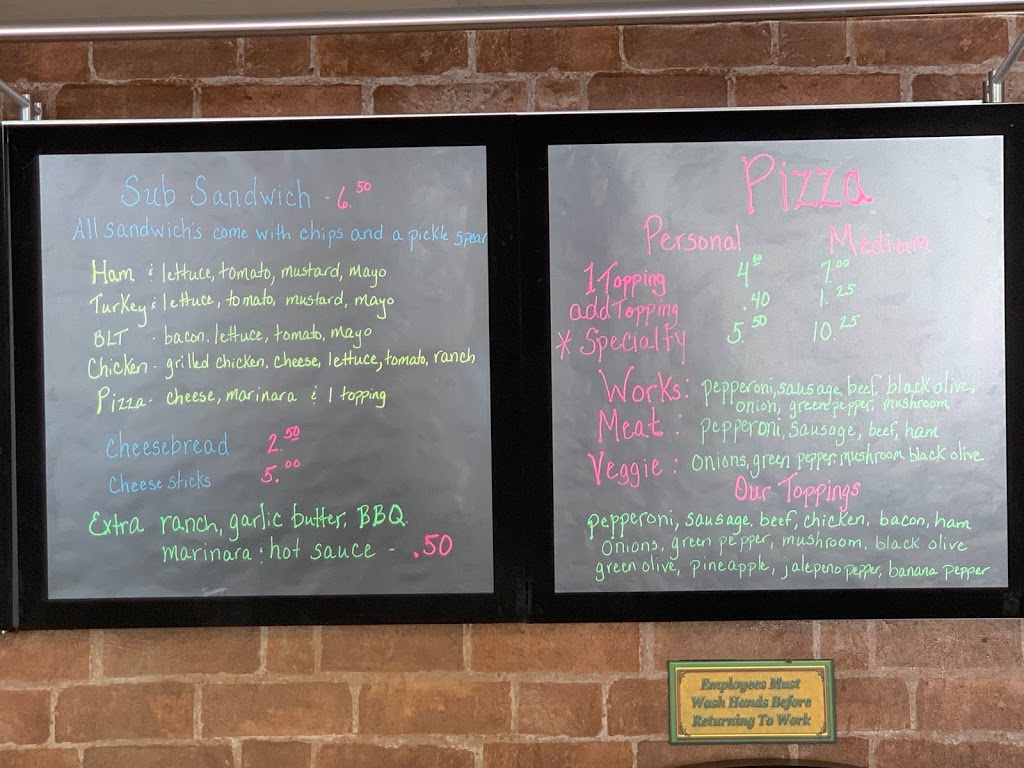 Sub Sandwich - 6.50
All sandwich's come with chips and a pickle spear
Ham & lettuce, tomato, mustard, mayo
Turkey & lettuce, tomato, mustard, mayo
BLT - bacon, lettuce, tomato, mayo
Chicken - grilled chicken, cheese, lettuce, tomato, ranch
Pizza - cheese, marinara & 1 topping
Cheesebread 2.50
Cheese sticks 5.00
Extra ranch, garlic butter, BBQ
marinara & hot sauce - .50
Pizza
Personal Medium
1 Topping 4.50 7.00
add Topping .40 1.25
* Specialty 5.50 10.25
Works: pepperoni, sausage, beef, black olive,
onion, green pepper, mushroom
Meat: pepperoni, sausage, beef, ham
Veggie: onions, green pepper, mushroom, black olive
Our Toppings
pepperoni, sausage, beef, chicken, bacon, ham
onions, green pepper, mushroom, black olive
green olive, pineapple, jalepeno pepper, banana pepper
Employees Must
Wash Hands Before
Returning To Work